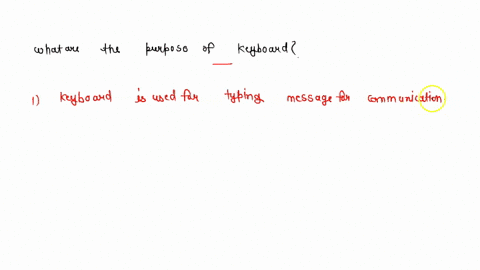 what are the purpose of keyboard?
1) keyboard is used for typing message for communication